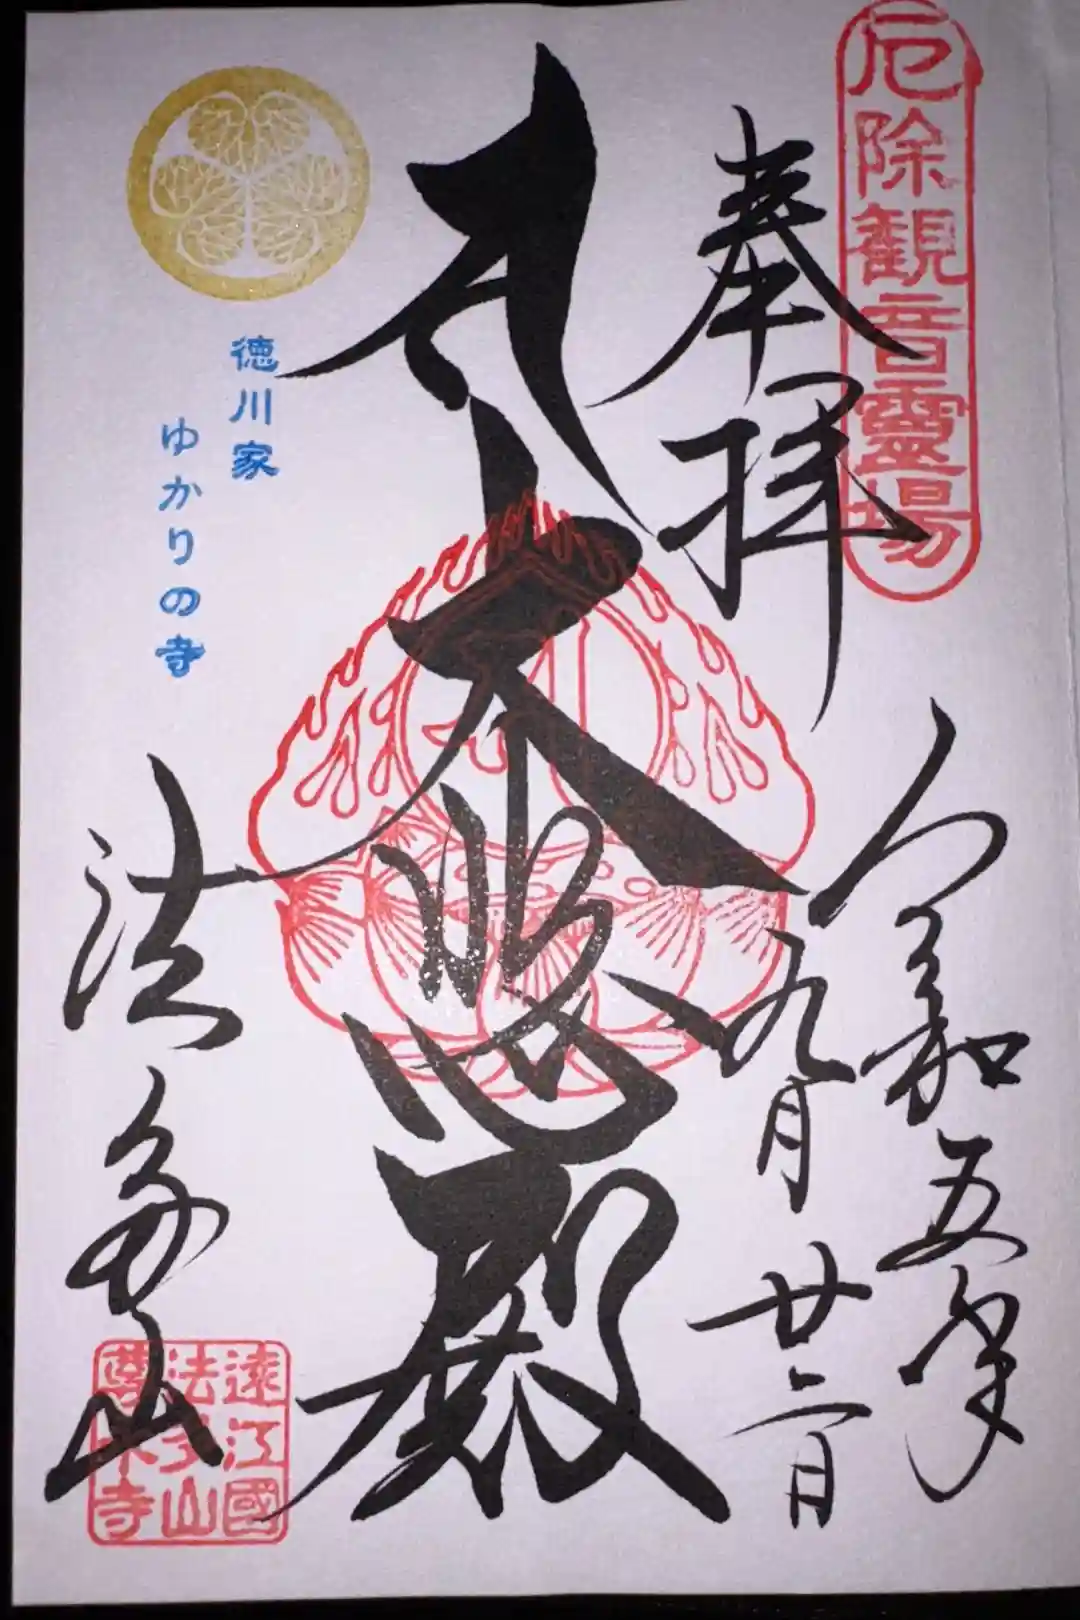 厄除観音霊場
奉拝
令和五年
九月廿二日
大悲殿
徳川家
ゆかりの寺
法多山
遠江國
法多山
尊永寺